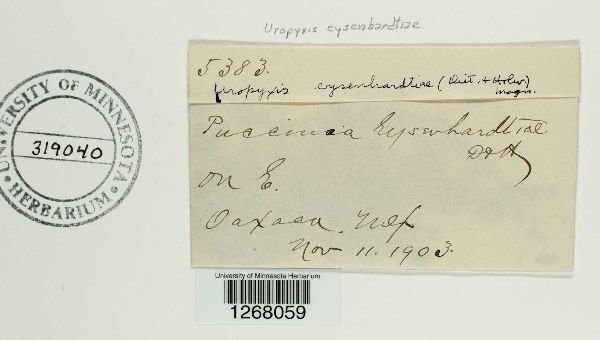 Uropyxis eysenhardtiae
5383.
Uropyxis eysenhardtiae (Diet. + Holw.)
Magn.
Puccinia Eysenhardtiae
D&H
on E.
Oaxaca. Mex
Nov 11. 1903.
UNIVERSITY OF MINNESOTA
319040
HERBARIUM
University of Minnesota Herbarium
1268059